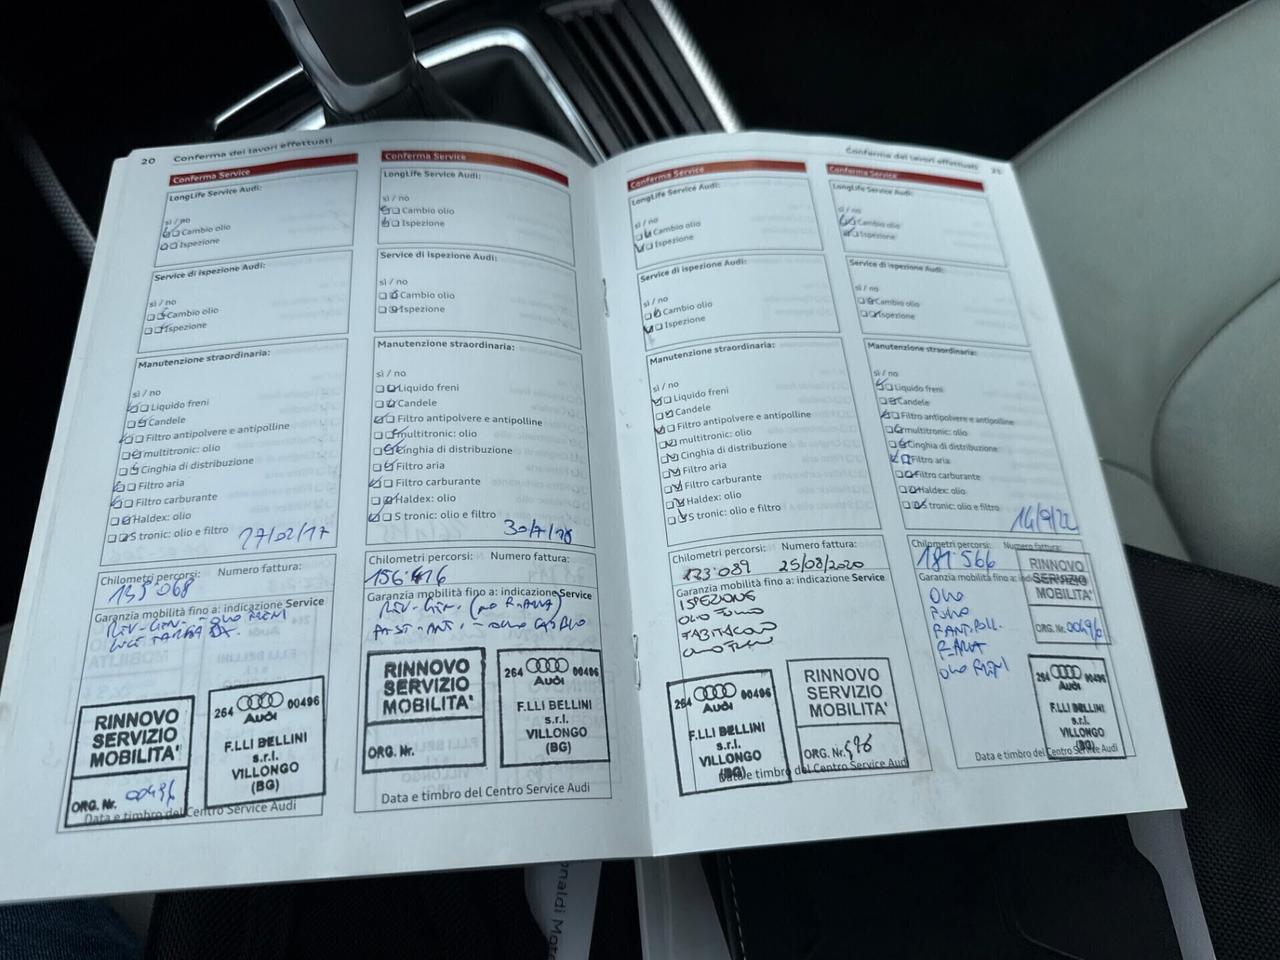 20 Conferma dei lavori effettuati
Conferma Service
LongLife Service Audi:
sì / no
Cambio olio
Ispezione
Service di ispezione Audi:
sì / no
Cambio olio
Ispezione
Manutenzione straordinaria:
sì / no
Liquido freni
Candele
Filtro antipolvere e antipolline
multitronic: olio
Cinghia di distribuzione
Filtro aria
Filtro carburante
Haldex: olio
S tronic: olio e filtro
27/02/17
Chilometri percorsi: Numero fattura:
Garanzia mobilità fino a: indicazione Service
RINNOVO
SERVIZIO
MOBILITA'
ORG. Nr. 00496
264 Audi 00496
F.LLI BELLINI
s.r.l.
VILLONGO
(BG)
Data e timbro del Centro Service Audi
Conferma Service
LongLife Service Audi:
sì / no
Cambio olio
Ispezione
Service di ispezione Audi:
sì / no
Cambio olio
Ispezione
Manutenzione straordinaria:
sì / no
Liquido freni
Candele
Filtro antipolvere e antipolline
multitronic: olio
Cinghia di distribuzione
Filtro aria
Filtro carburante
Haldex: olio
S tronic: olio e filtro
Chilometri percorsi: Numero fattura:
Garanzia mobilità fino a: indicazione Service
RINNOVO
SERVIZIO
MOBILITA'
ORG. Nr.
264 Audi 00496
F.LLI BELLINI
s.r.l.
VILLONGO
(BG)
Data e timbro del Centro Service Audi
Conferma dei lavori effettuati 21
Conferma Service
LongLife Service Audi:
sì / no
Cambio olio
Ispezione
Service di ispezione Audi:
sì / no
Cambio olio
Ispezione
Manutenzione straordinaria:
sì / no
Liquido freni
Candele
Filtro antipolvere e antipolline
multitronic: olio
Cinghia di distribuzione
Filtro aria
Filtro carburante
Haldex: olio
S tronic: olio e filtro
Chilometri percorsi: Numero fattura:
25/08/2020
Garanzia mobilità fino a: indicazione Service
ISPEZIONE
264 Audi 00496
F.LLI BELLINI
s.r.l.
VILLONGO
(BG)
RINNOVO
SERVIZIO
MOBILITA'
ORG. Nr. 496
Data e timbro del Centro Service Audi
Conferma Service
LongLife Service Audi:
sì / no
Cambio olio
Ispezione
Service di ispezione Audi:
sì / no
Cambio olio
Ispezione
Manutenzione straordinaria:
sì / no
Liquido freni
Candele
Filtro antipolvere e antipolline
multitronic: olio
Cinghia di distribuzione
Filtro aria
Filtro carburante
Haldex: olio
S tronic: olio e filtro
14/9/22
Chilometri percorsi: Numero fattura:
181 566
Garanzia mobilità fino a:
RINNOVO
SERVIZIO
MOBILITA'
ORG. Nr. 00496
264 Audi 00496
F.LLI BELLINI
s.r.l.
VILLONGO
(BG)
Data e timbro del Centro Service Audi